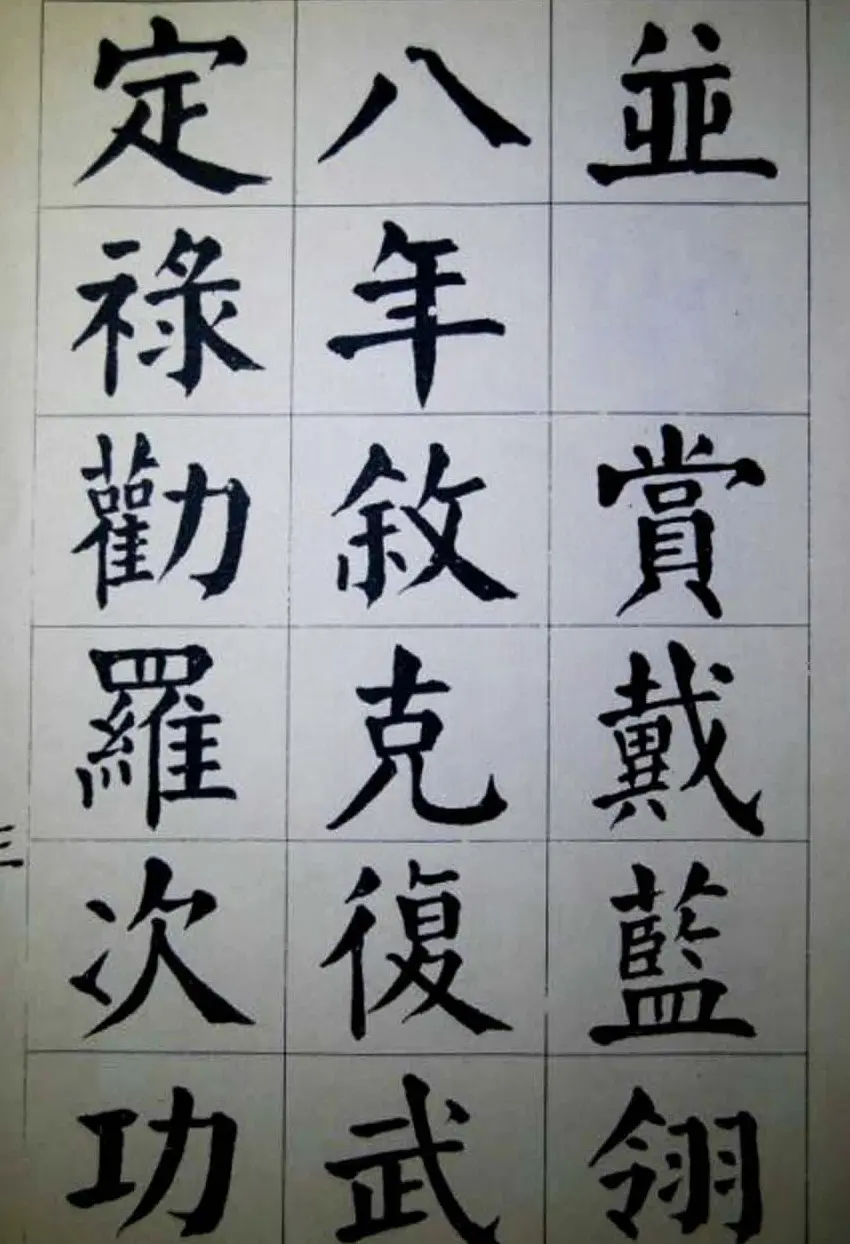 並 賞戴藍翎
八年敘克復武
定祿勸羅次功
三